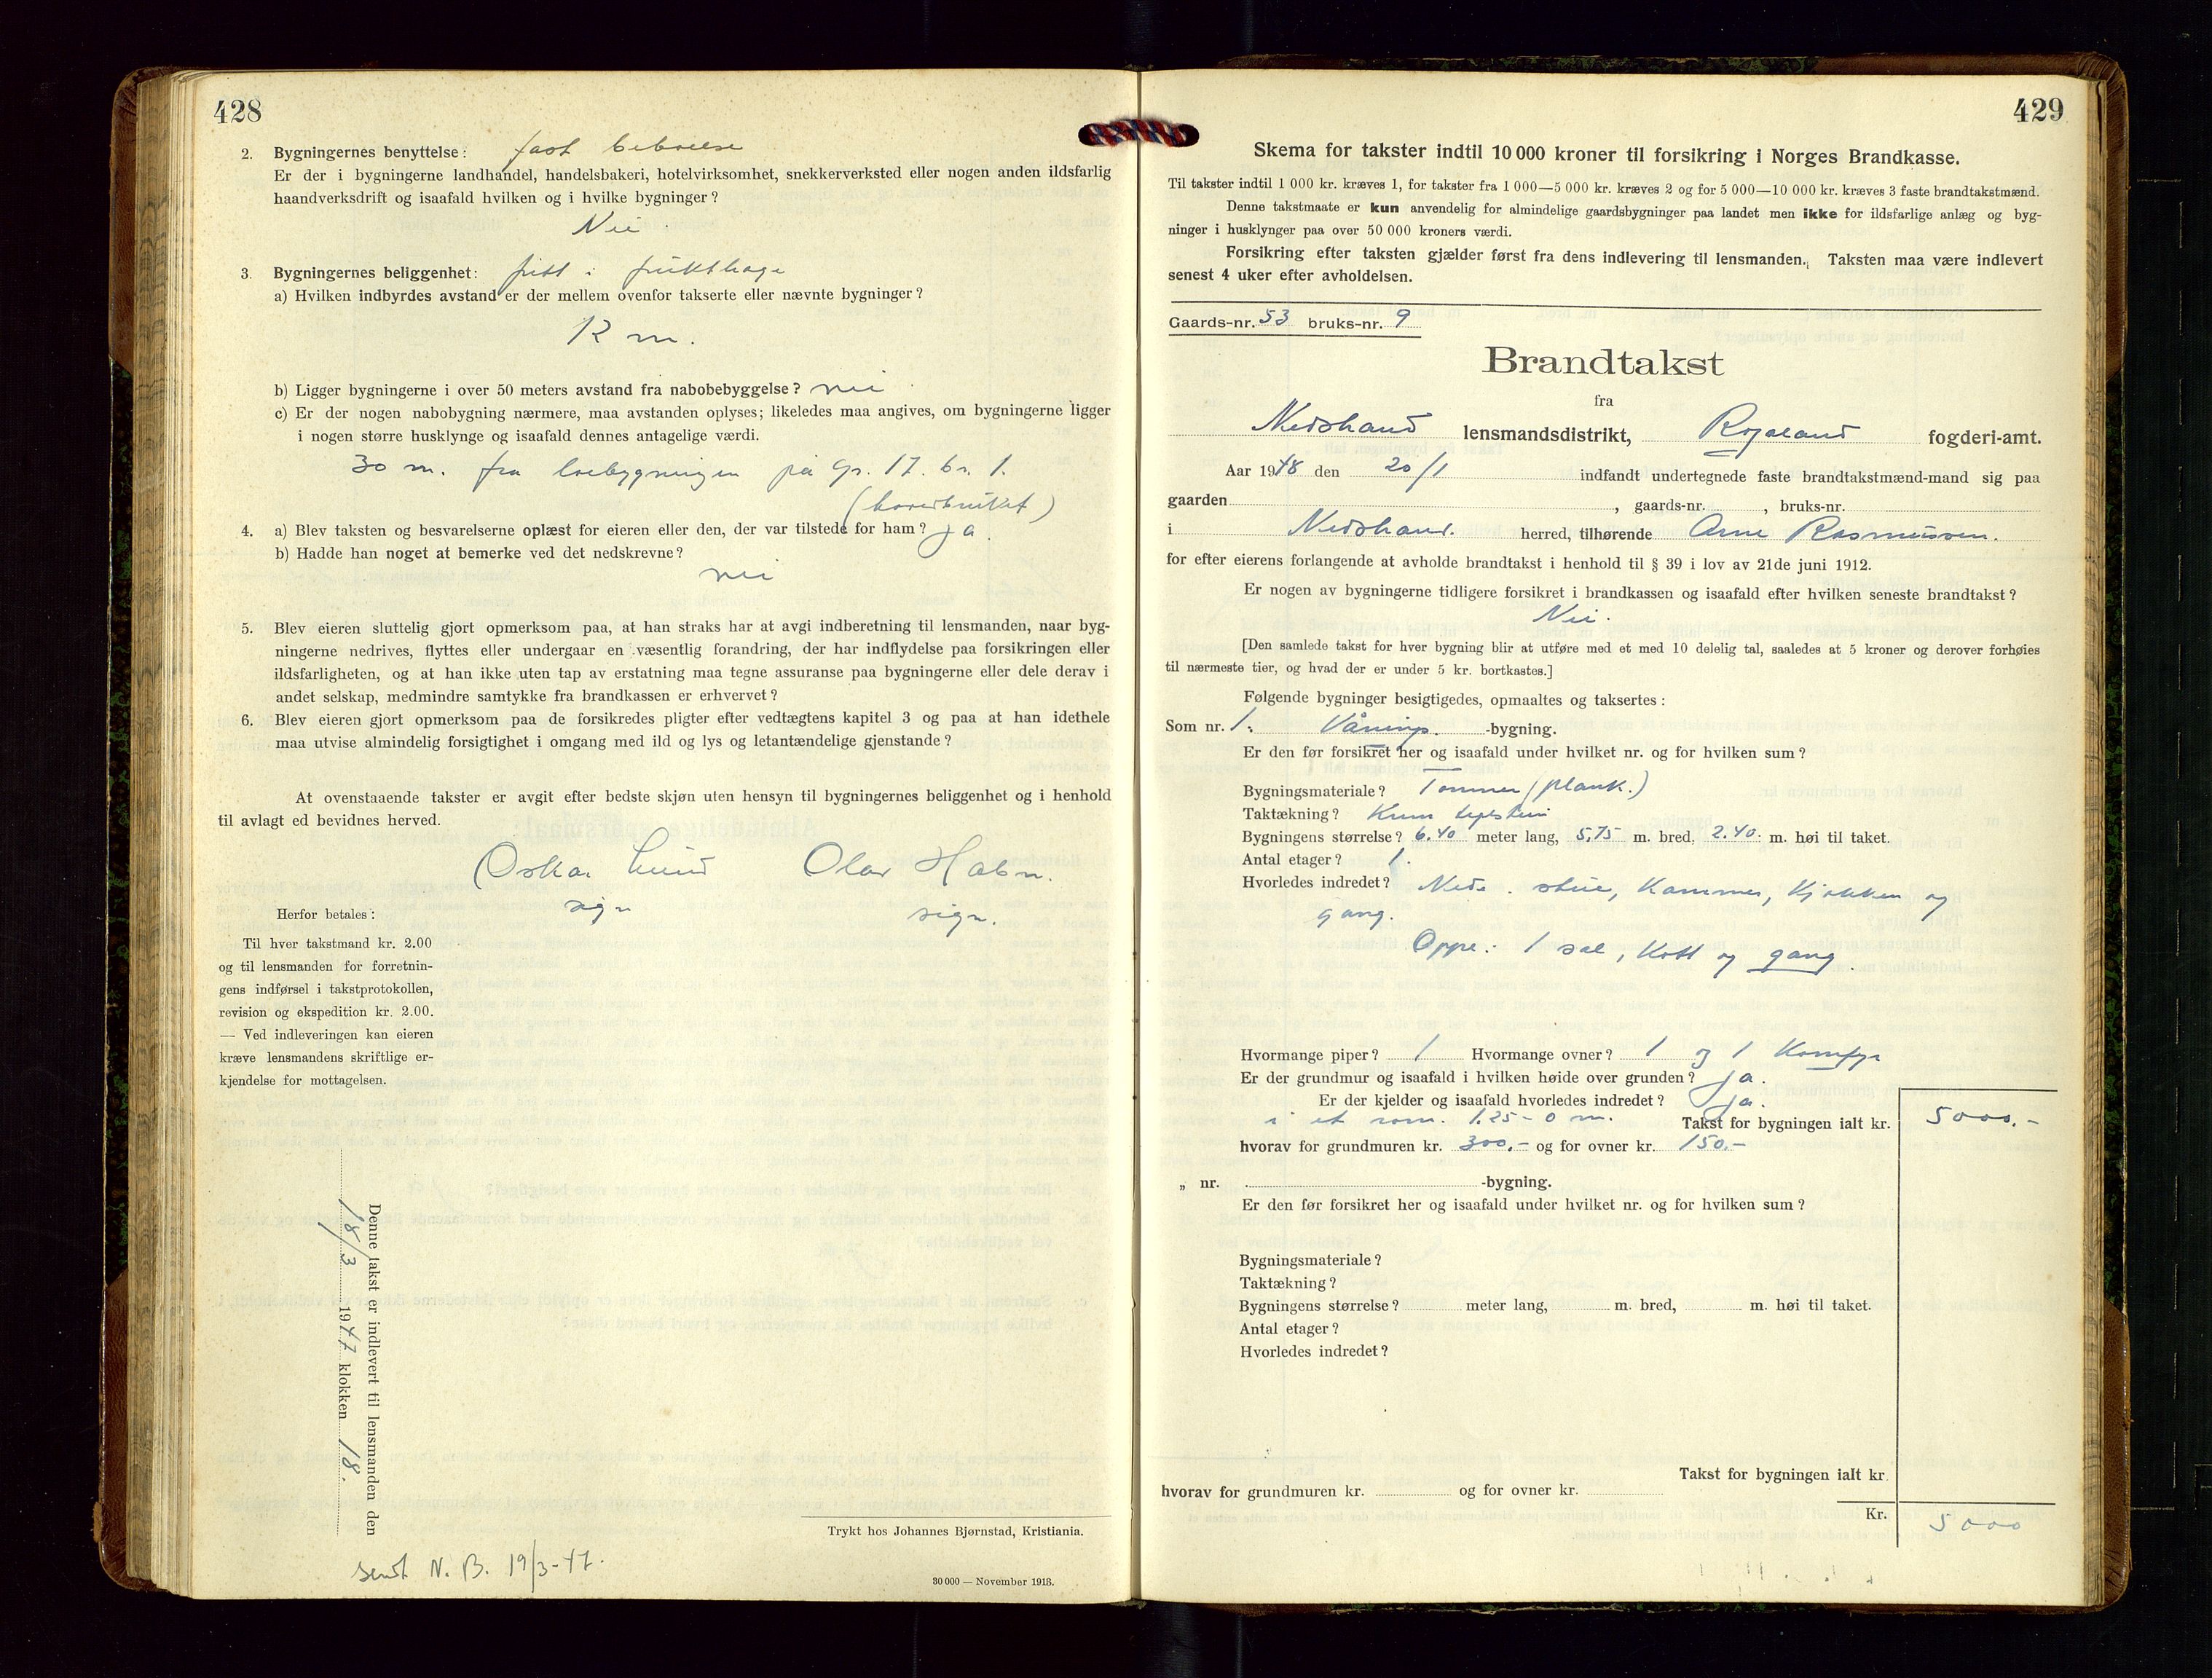 428
2. Bygningernes benyttelse: fast beboelse
Er der i bygningerne landhandel, handelsbakeri, hotelvirksomhet, snekkerverksted eller nogen anden ildsfarlig
haandverksdrift og isaafald hvilken og i hvilke bygninger?
Nei.
3. Bygningernes beliggenhet: fritt i frukthage
a) Hvilken indbyrdes avstand er der mellem ovenfor takserte eller nævnte bygninger?
12 m.
b) Ligger bygningerne i over 50 meters avstand fra nabobebyggelse? nei
c) Er der nogen nabobygning nærmere, maa avstanden oplyses; likeledes maa angives, om bygningerne ligger
i nogen større husklynge og isaafald dennes antagelige værdi.
30 m. fra løebygningen på gr. 17. br. 1.
(hovedbruket)
4. a) Blev taksten og besvarelserne oplæst for eieren eller den, der var tilstede for ham? ja.
b) Hadde han noget at bemerke ved det nedskrevne?
nei
5. Blev eieren sluttelig gjort opmerksom paa, at han straks har at avgi indberetning til lensmanden, naar byg-
ningerne nedrives, flyttes eller undergaar en væsentlig forandring, der har indflydelse paa forsikringen eller
ildsfarligheten, og at han ikke uten tap av erstatning maa tegne assuranse paa bygningerne eller dele derav i
andet selskap, medmindre samtykke fra brandkassen er erhvervet?
6. Blev eieren gjort opmerksom paa de forsikredes pligter efter vedtægtens kapitel 3 og paa at han idethele
maa utvise almindelig forsigtighet i omgang med ild og lys og letantændelige gjenstande?
At ovenstaaende takster er avgit efter bedste skjøn uten hensyn til bygningernes beliggenhet og i henhold
til avlagt ed bevidnes herved.
Oskar Lund Olav
sign sign.
Herfor betales:
Til hver takstmand kr. 2.00
og til lensmanden for forretnin-
gens indførsel i takstprotokollen,
revision og ekspedition kr. 2.00.
— Ved indleveringen kan eieren
kræve lensmandens skriftlige er-
kjendelse for mottagelsen.
Denne takst er indlevert til lensmanden den
18/3 1947 klokken 18.
Trykt hos Johannes Bjørnstad, Kristiania.
sendt N. B. 19/3-47.
30 000 — November 1913.
429
Skema for takster indtil 10 000 kroner til forsikring i Norges Brandkasse.
Til takster indtil 1 000 kr. kræves 1, for takster fra 1 000—5 000 kr. kræves 2 og for 5 000—10 000 kr. kræves 3 faste brandtakstmænd.
Denne takstmaate er kun anvendelig for almindelige gaardsbygninger paa landet men ikke for ildsfarlige anlæg og byg-
ninger i husklynger paa over 50 000 kroners værdi.
Forsikring efter taksten gjælder først fra dens indlevering til lensmanden. Taksten maa være indlevert
senest 4 uker efter avholdelsen.
Gaards-nr. 53 bruks-nr. 9
Brandtakst
fra
Nedshand lensmandsdistrikt, Rogaland fogderi-amt.
Aar 1948 den 20/1 indfandt undertegnede faste brandtakstmænd-mand sig paa
gaarden , gaards-nr. , bruks-nr.
i Nedshand. herred, tilhørende Arne Rasmussen.
for efter eierens forlangende at avholde brandtakst i henhold til § 39 i lov av 21de juni 1912.
Er nogen av bygningerne tidligere forsikret i brandkassen og isaafald efter hvilken seneste brandtakst?
Nei.
[Den samlede takst for hver bygning blir at utføre med et med 10 delelig tal, saaledes at 5 kroner og derover forhøies
til nærmeste tier, og hvad der er under 5 kr. bortkastes.]
Følgende bygninger besigtigedes, opmaaltes og taksertes:
Som nr. 1. Vånings. -bygning.
Er den før forsikret her og isaafald under hvilket nr. og for hvilken sum?
Bygningsmateriale? Tømmer (plank.)
Taktækning? Krum teglstein
Bygningens størrelse? 6.40 meter lang, 5.75 m. bred, 2.40. m. høi til taket.
Antal etager? 1.
Hvorledes indredet? Nede. stue, Kammer, Kjøkken og
gang.
Oppe: 1 sal, Kott og gang.
Hvormange piper? 1 Hvormange ovner? 1 og 1 Komfyr
Er der grundmur og isaafald i hvilken høide over grunden? ja.
Er der kjelder og isaafald hvorledes indredet? ja.
i et rom. 1.25-0 m. Takst for bygningen ialt kr. 5000.-
hvorav for grundmuren kr. 300.- og for ovner kr. 150.-
„ nr. -bygning.
Er den før forsikret her og isaafald under hvilket nr. og for hvilken sum?
Bygningsmateriale?
Taktækning?
Bygningens størrelse? meter lang, m. bred, m. høi til taket.
Antal etager?
Hvorledes indredet?
Takst for bygningen ialt kr.
hvorav for grundmuren kr. og for ovner kr.
Kr. 5000